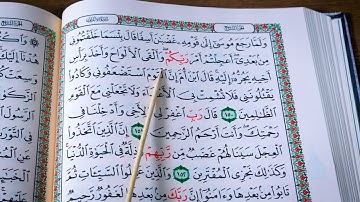 وَلَمَّا رَجَعَ مُوسَىٰٓ إِلَىٰ قَوْمِهِۦ غَضْبَٰنَ أَسِفًا قَالَ بِئْسَمَا خَلَفْتُمُونِى
مِنۢ بَعْدِىٓ أَعَجِلْتُمْ أَمْرَ رَبِّكُمْ وَأَلْقَى ٱلْأَلْوَاحَ وَأَخَذَ بِرَأْسِ
أَخِيهِ يَجُرُّهُۥٓ إِلَيْهِ قَالَ ٱبْنَ أُمَّ إِنَّ ٱلْقَوْمَ ٱسْتَضْعَفُونِى وَكَادُوا۟
يَقْتُلُونَنِى فَلَا تُشْمِتْ بِىَ ٱلْأَعْدَآءَ وَلَا تَجْعَلْنِى مَعَ ٱلْقَوْمِ
ٱلظَّٰلِمِينَ ١٥٠ قَالَ رَبِّ ٱغْفِرْ لِى وَلِأَخِى وَأَدْخِلْنَا فِى
رَحْمَتِكَ وَأَنتَ أَرْحَمُ ٱلرَّٰحِمِينَ ١٥١ إِنَّ ٱلَّذِينَ ٱتَّخَذُوا۟
ٱلْعِجْلَ سَيَنَالُهُمْ غَضَبٌ مِّن رَّبِّهِمْ وَذِلَّةٌ فِى ٱلْحَيَوٰةِ ٱلدُّنْيَا
وَكَذَٰلِكَ نَجْزِى ٱلْمُفْتَرِينَ ١٥٢ وَٱلَّذِينَ عَمِلُوا۟ ٱلسَّيِّـَٔاتِ ثُمَّ
تَابُوا۟ مِنۢ بَعْدِهَا وَءَامَنُوٓا۟ إِنَّ رَبَّكَ مِنۢ بَعْدِهَا لَغَفُورٌ رَّحِيمٌ